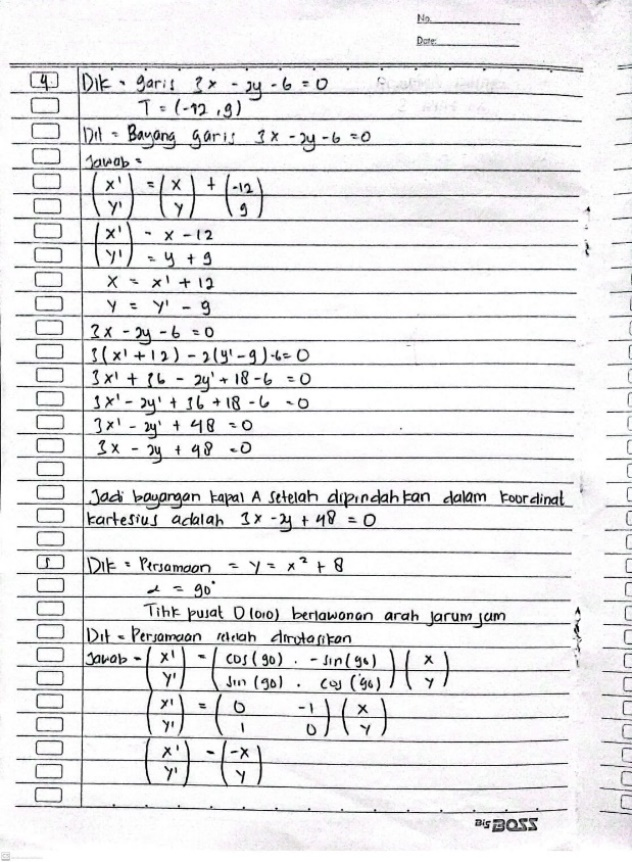 No.
Date:
4. Dik = garis 3x - 2y - 6 = 0
T = (-12, 9)
Dit = Bayang garis 3x - 2y - 6 = 0
Jawab =
(x' y') = (x y) + (-12 9)
(x' = x - 12
y') = y + 9
x = x' + 12
y = y' - 9
3x - 2y - 6 = 0
3(x' + 12) - 2(y' - 9) - 6 = 0
3x' + 36 - 2y' + 18 - 6 = 0
3x' - 2y' + 36 + 18 - 6 = 0
3x' - 2y' + 48 = 0
3x - 2y + 48 = 0
Jadi bayangan kapal A setelah dipindahkan dalam koordinat
kartesius adalah 3x - 2y + 48 = 0
5 Dik = Persamaan = y = x² + 8
α = 90°
Titik pusat O (0,0) berlawanan arah jarum jam
Dit = Persamaan setelah dirotasikan
Jawab = (x' y') = (cos (90) . -sin (90) sin (90) . cos (90)) (x y)
(x' y') = (0 -1 1 0) (x y)
(x' y') = (-x y)
Big BOSS